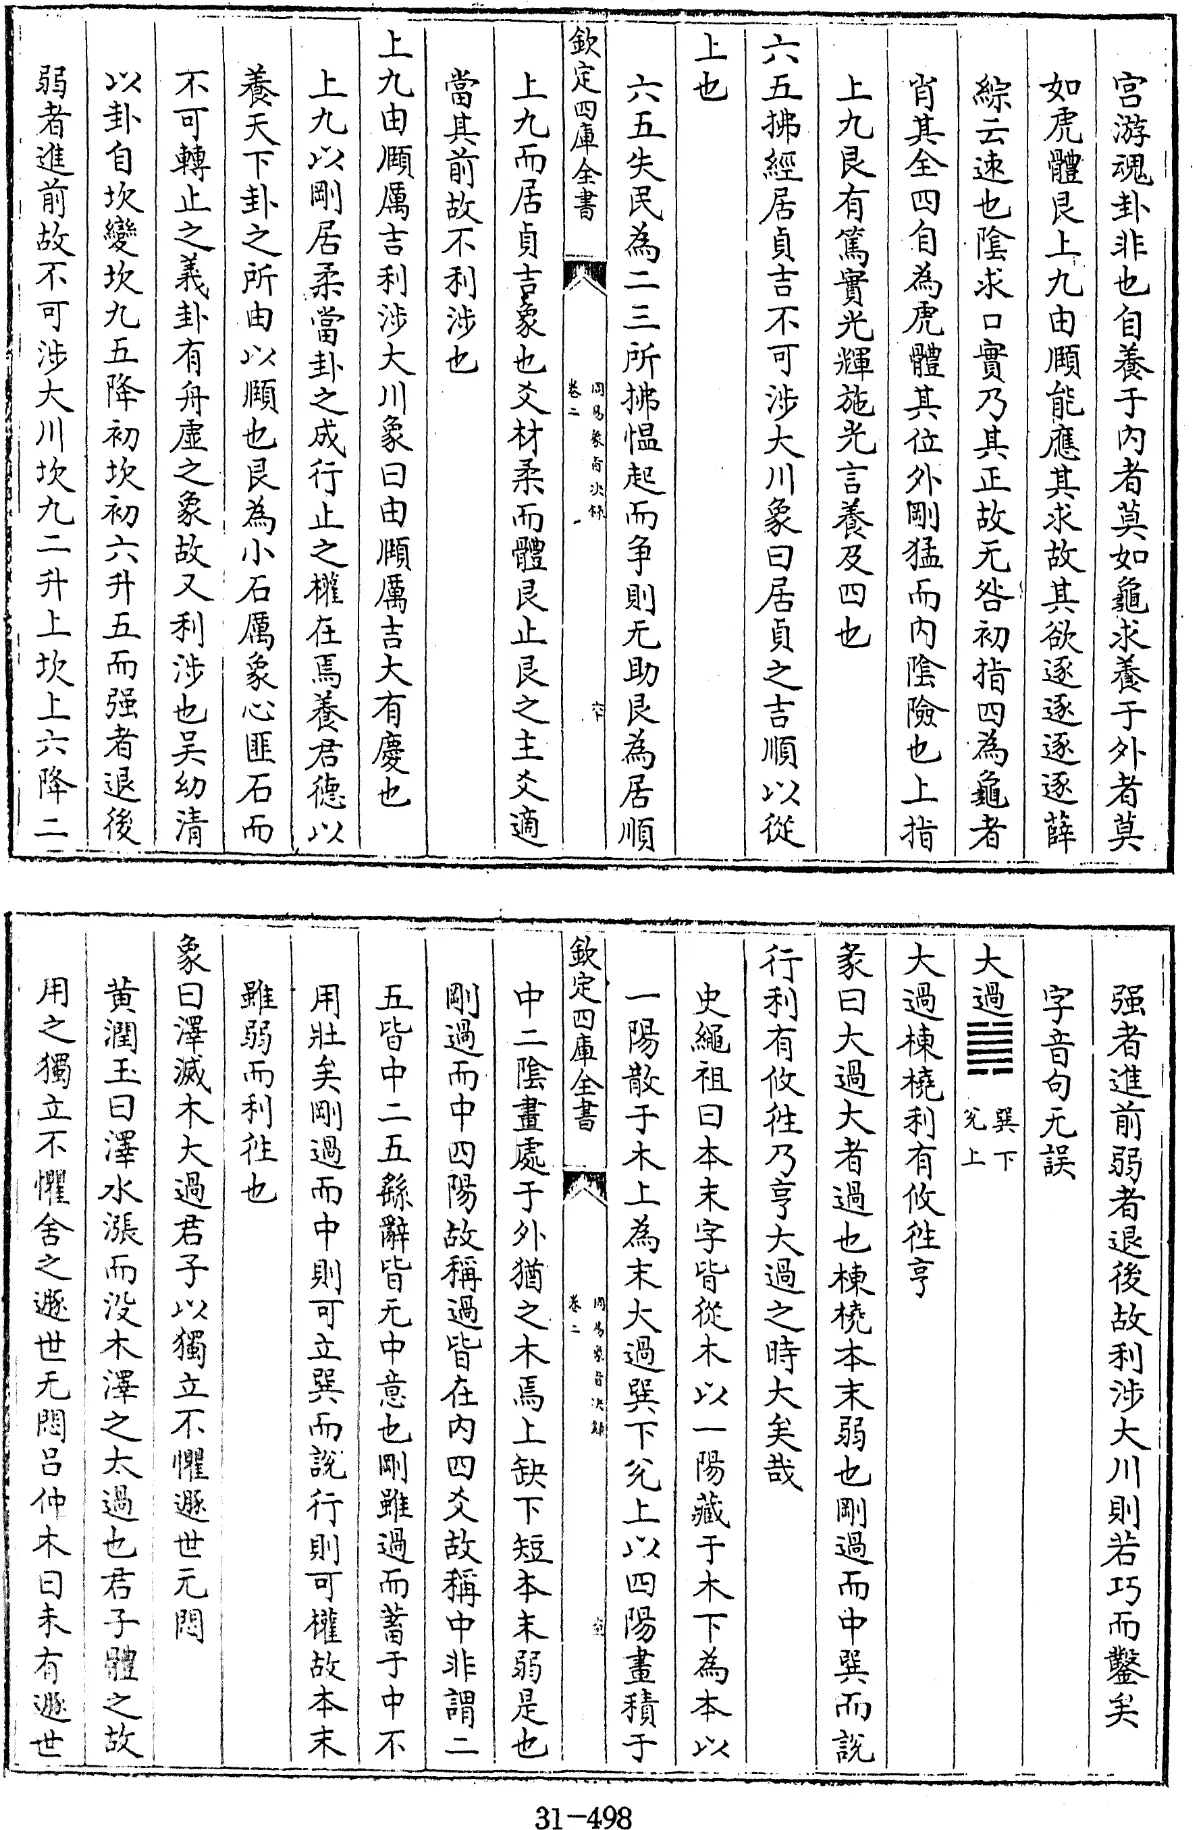 宫游魂卦非也自養于内者莫如龜求養于外者莫
如虎體艮上九由頤能應其求故其欲逐逐逐逐薛
綜云速也陰求口實乃其正故无咎初指四為龜者
肖其全四自為虎體其位外剛猛而内陰險也上指
上九艮有篤實光輝施光言養及四也
六五拂經居貞吉不可涉大川象曰居貞之吉順以從
上也
六五失民為二三所拂愠起而争則无助艮為居順
欽定四庫全書
周易象旨決錄
卷二
上九而居貞吉象也爻材柔而體艮止艮之主爻適
當其前故不利涉也
上九由頤厲吉利涉大川象曰由頤厲吉大有慶也
上九以剛居柔當卦之成行止之權在焉養君德以
養天下卦之所由以頤也艮為小石厲象心匪石而
不可轉止之義卦有舟虚之象故又利涉也吴幼清
以卦自坎變坎九五降初坎初六升五而强者退後
弱者進前故不可涉大川坎九二升上坎上六降二
强者進前弱者退後故利涉大川則若巧而鑿矣
字音句无誤
大過䷛
巽下
兊上
大過棟橈利有攸徃亨
彖曰大過大者過也棟橈本末弱也剛過而中巽而説
行利有攸徃乃亨大過之時大矣哉
史繩祖曰本末字皆從木以一陽藏于木下為本以
一陽散于木上為末大過巽下兊上以四陽畫積于
欽定四庫全書
周易象旨決錄
卷二
中二陰畫處于外猶之木焉上缺下短本末弱是也
剛過而中四陽故稱過皆在内四爻故稱中非謂二
五皆中二五繇辭皆无中意也剛雖過而蓄于中不
用壯矣剛過而中則可立巽而説行則可權故本末
雖弱而利徃也
象曰澤滅木大過君子以獨立不懼遯世无悶
黄潤玉曰澤水漲而没木澤之太過也君子體之故
用之獨立不懼舍之遯世无悶吕仲木曰未有遯世
31-498